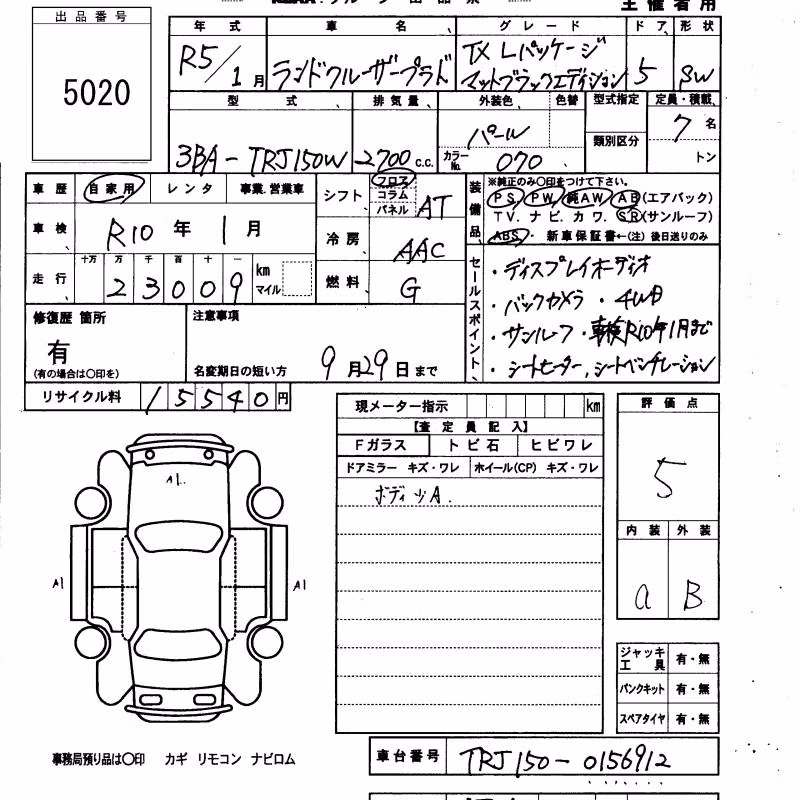 出品番号
5020
主催者用
年式 車名 グレード ドア 形状
R5/1月 ランドクルーザープラド TX Lパッケージ マットブラックエディション 5 SW
型式 排気量 外装色 色替 型式指定 定員・積載
3BA-TRJ150W 2700 c.c. パール 類別区分 7名
カラーNo. 070 トン
車歴 自家用 レンタ 事業.営業車
車検 R10年1月
走行 十万 万 千 百 十 一 km マイル
23009
シフト フロア コラム パネル AT
冷房 AAC
燃料 G
装備品 ※純正のみ〇印をつけて下さい。
PS PW 純AW AB(エアバック)
TV.ナビ.カワ.SR(サンルーフ)
ABS・新車保証書←(注)後日送りのみ
セールスポイント
・ディスプレイオーディオ
・バックカメラ ・4WD
・サンルーフ ・車検R10年1月まで
・シートヒーター,シートベンチレーション
修復歴 箇所
有
(有の場合は〇印を)
注意事項
名変期日の短い方 9月29日まで
リサイクル料 15540円
現メーター指示 km
【査定員記入】
Fガラス トビ石 ヒビワレ
ドアミラー キズ・ワレ ホイール(CP) キズ・ワレ
ボディ少A.
評価点
5
内装 外装
a B
A1.
A1 A1
ジャッキ工具 有・無
パンクキット 有・無
スペアタイヤ 有・無
事務局預り品は〇印 カギ リモコン ナビロム
車台番号 TRJ150-0156912